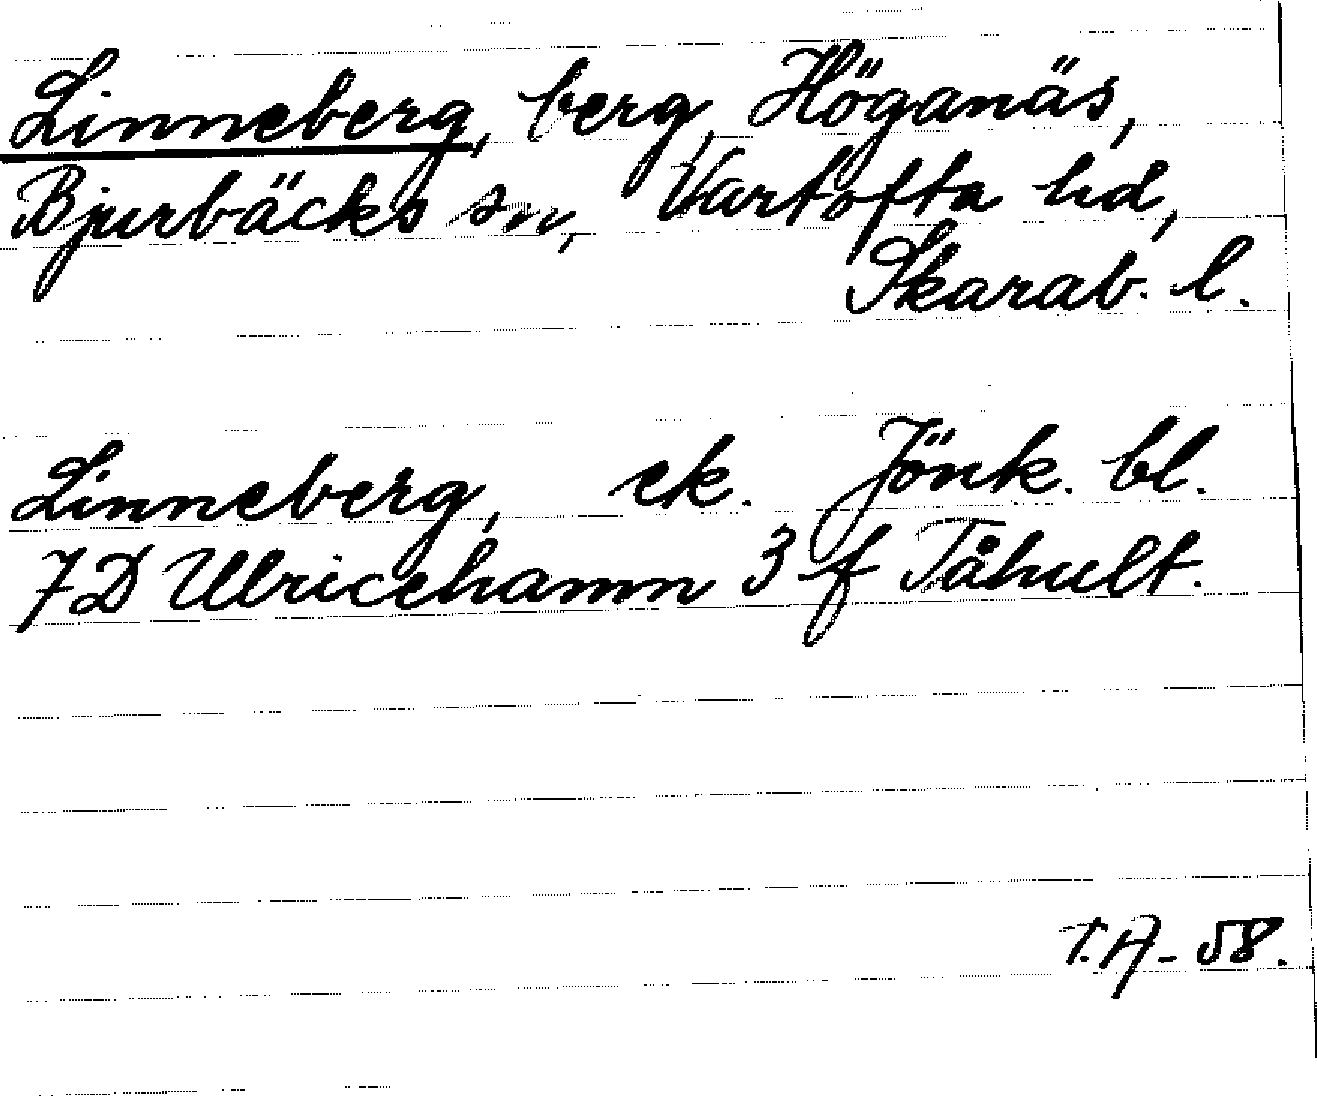 Linneberg, berg, Höganäs,
Bjurbäcks sn, Vartofta hd,
Skarab. l.
Linneberg, ek. Jönk. bl.
7D Ulricehamn 3 f Tåhult.
T.A-58.